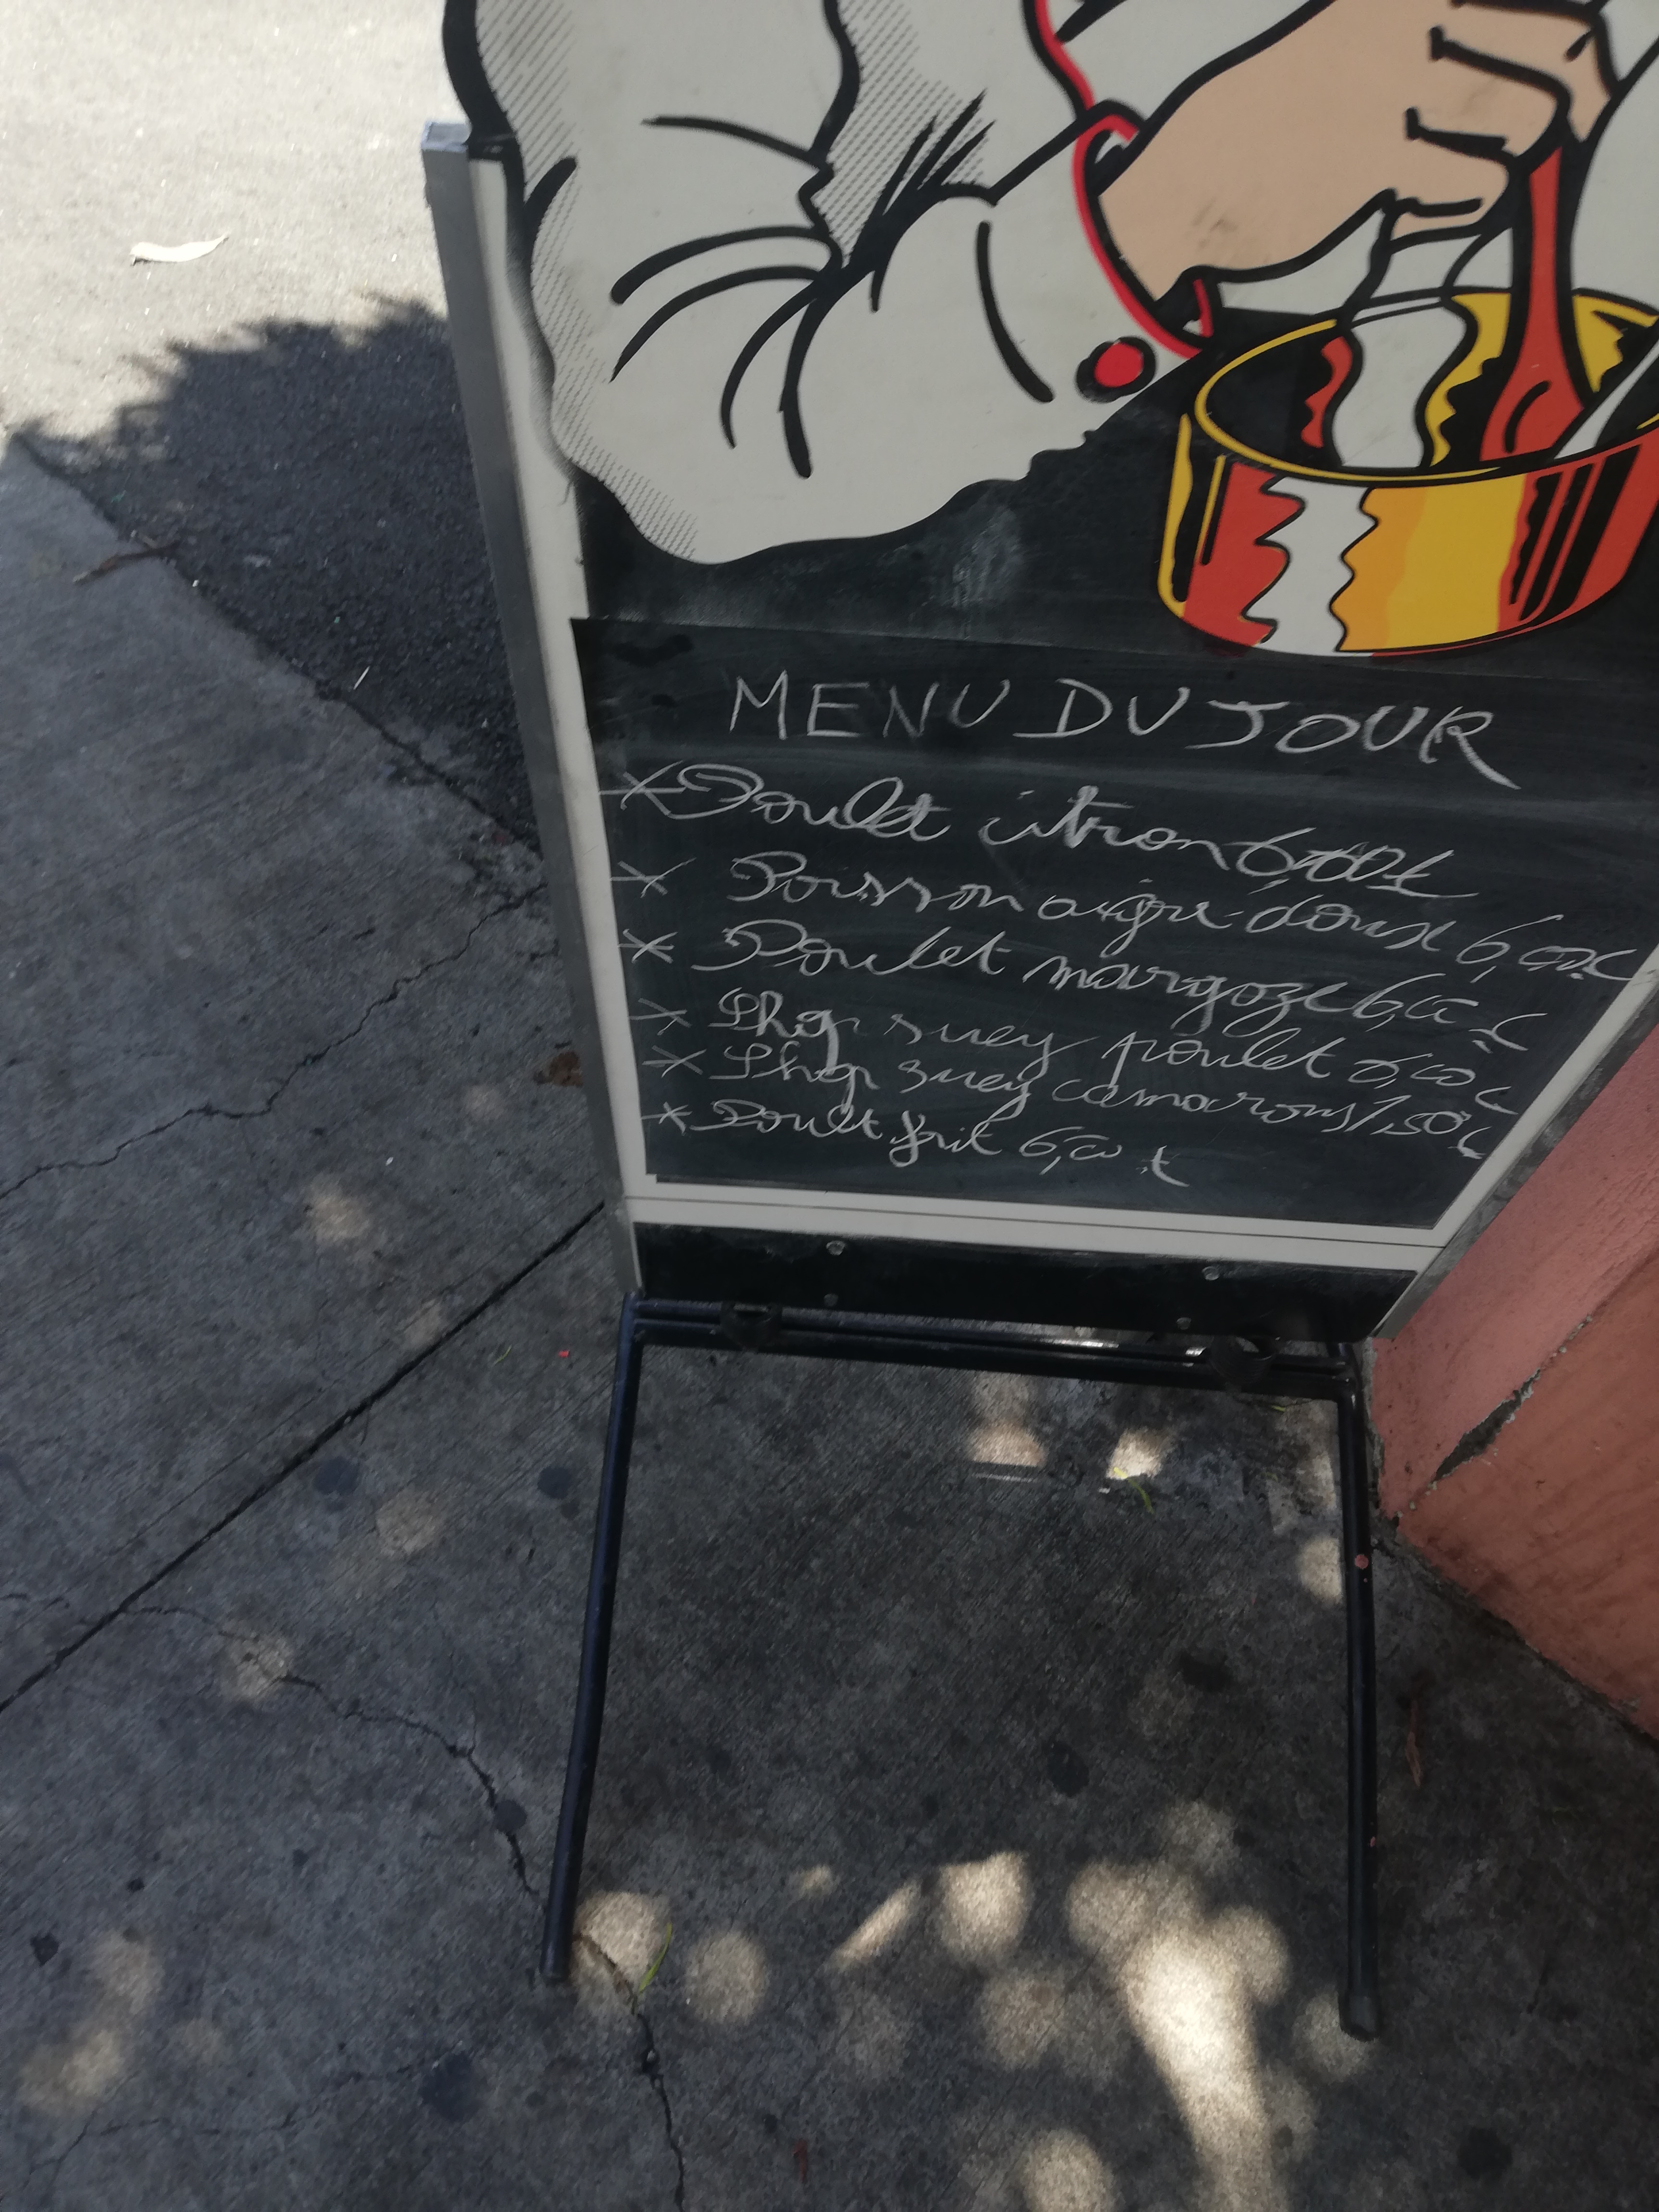 MENU DU JOUR
* Poulet citron 6,00€
* Poisson aigre-doux 6,00€
* Poulet margoze 6,00€
* Shop suey poulet 6,00€
* Shop suey camarons 7,50€
* Poulet frit 6,00€